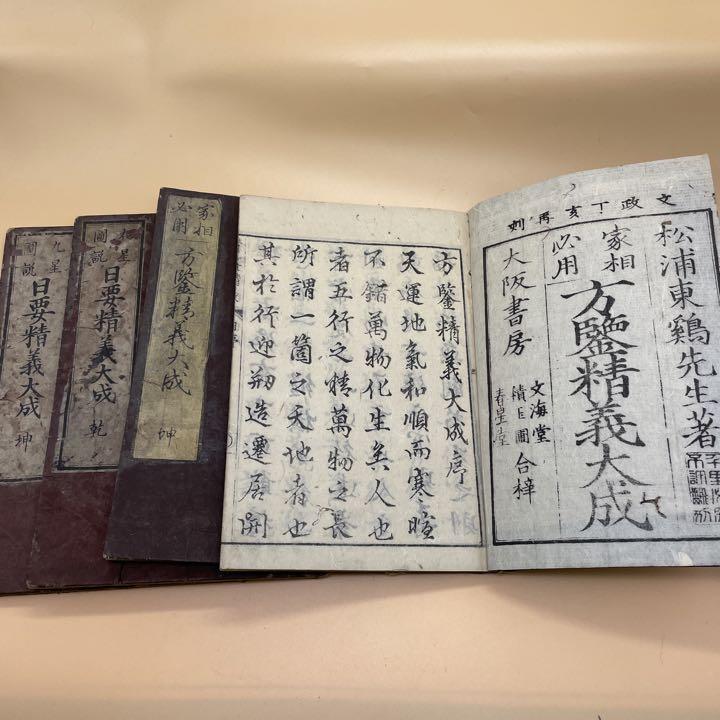 文政丁亥再刻
松浦東鷄先生著
家相
必用
方鑒精義大成
大阪書房
文海堂
積玉圃
春星堂
合梓
方鑒精義大成序
天運地氣和順而寒暄
不錯萬物化生矣人也
者五行之精萬物之長
所謂一箇之天地者也
其於行迎剏造遷居開
家相
必用
方鑒精義大成
坤
九星
圖說
日要精義大成
乾
九星
圖說
日要精義大成
坤